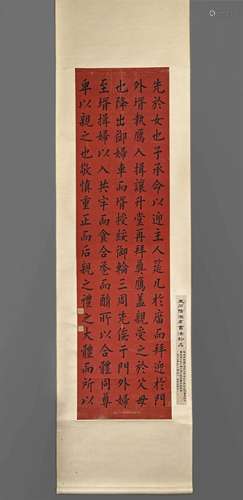 先於女也子承命以迎主人筵几於廟而拜迎於門
外壻執鴈入揖讓升堂再拜奠鴈蓋親受之於父母
也降出御婦車而壻授綏御輪三周先俟于門外婦
至壻揖婦以入共牢而食合巹而酳所以合體同尊
卑以親之也敬慎重正而后親之禮之大體而所以